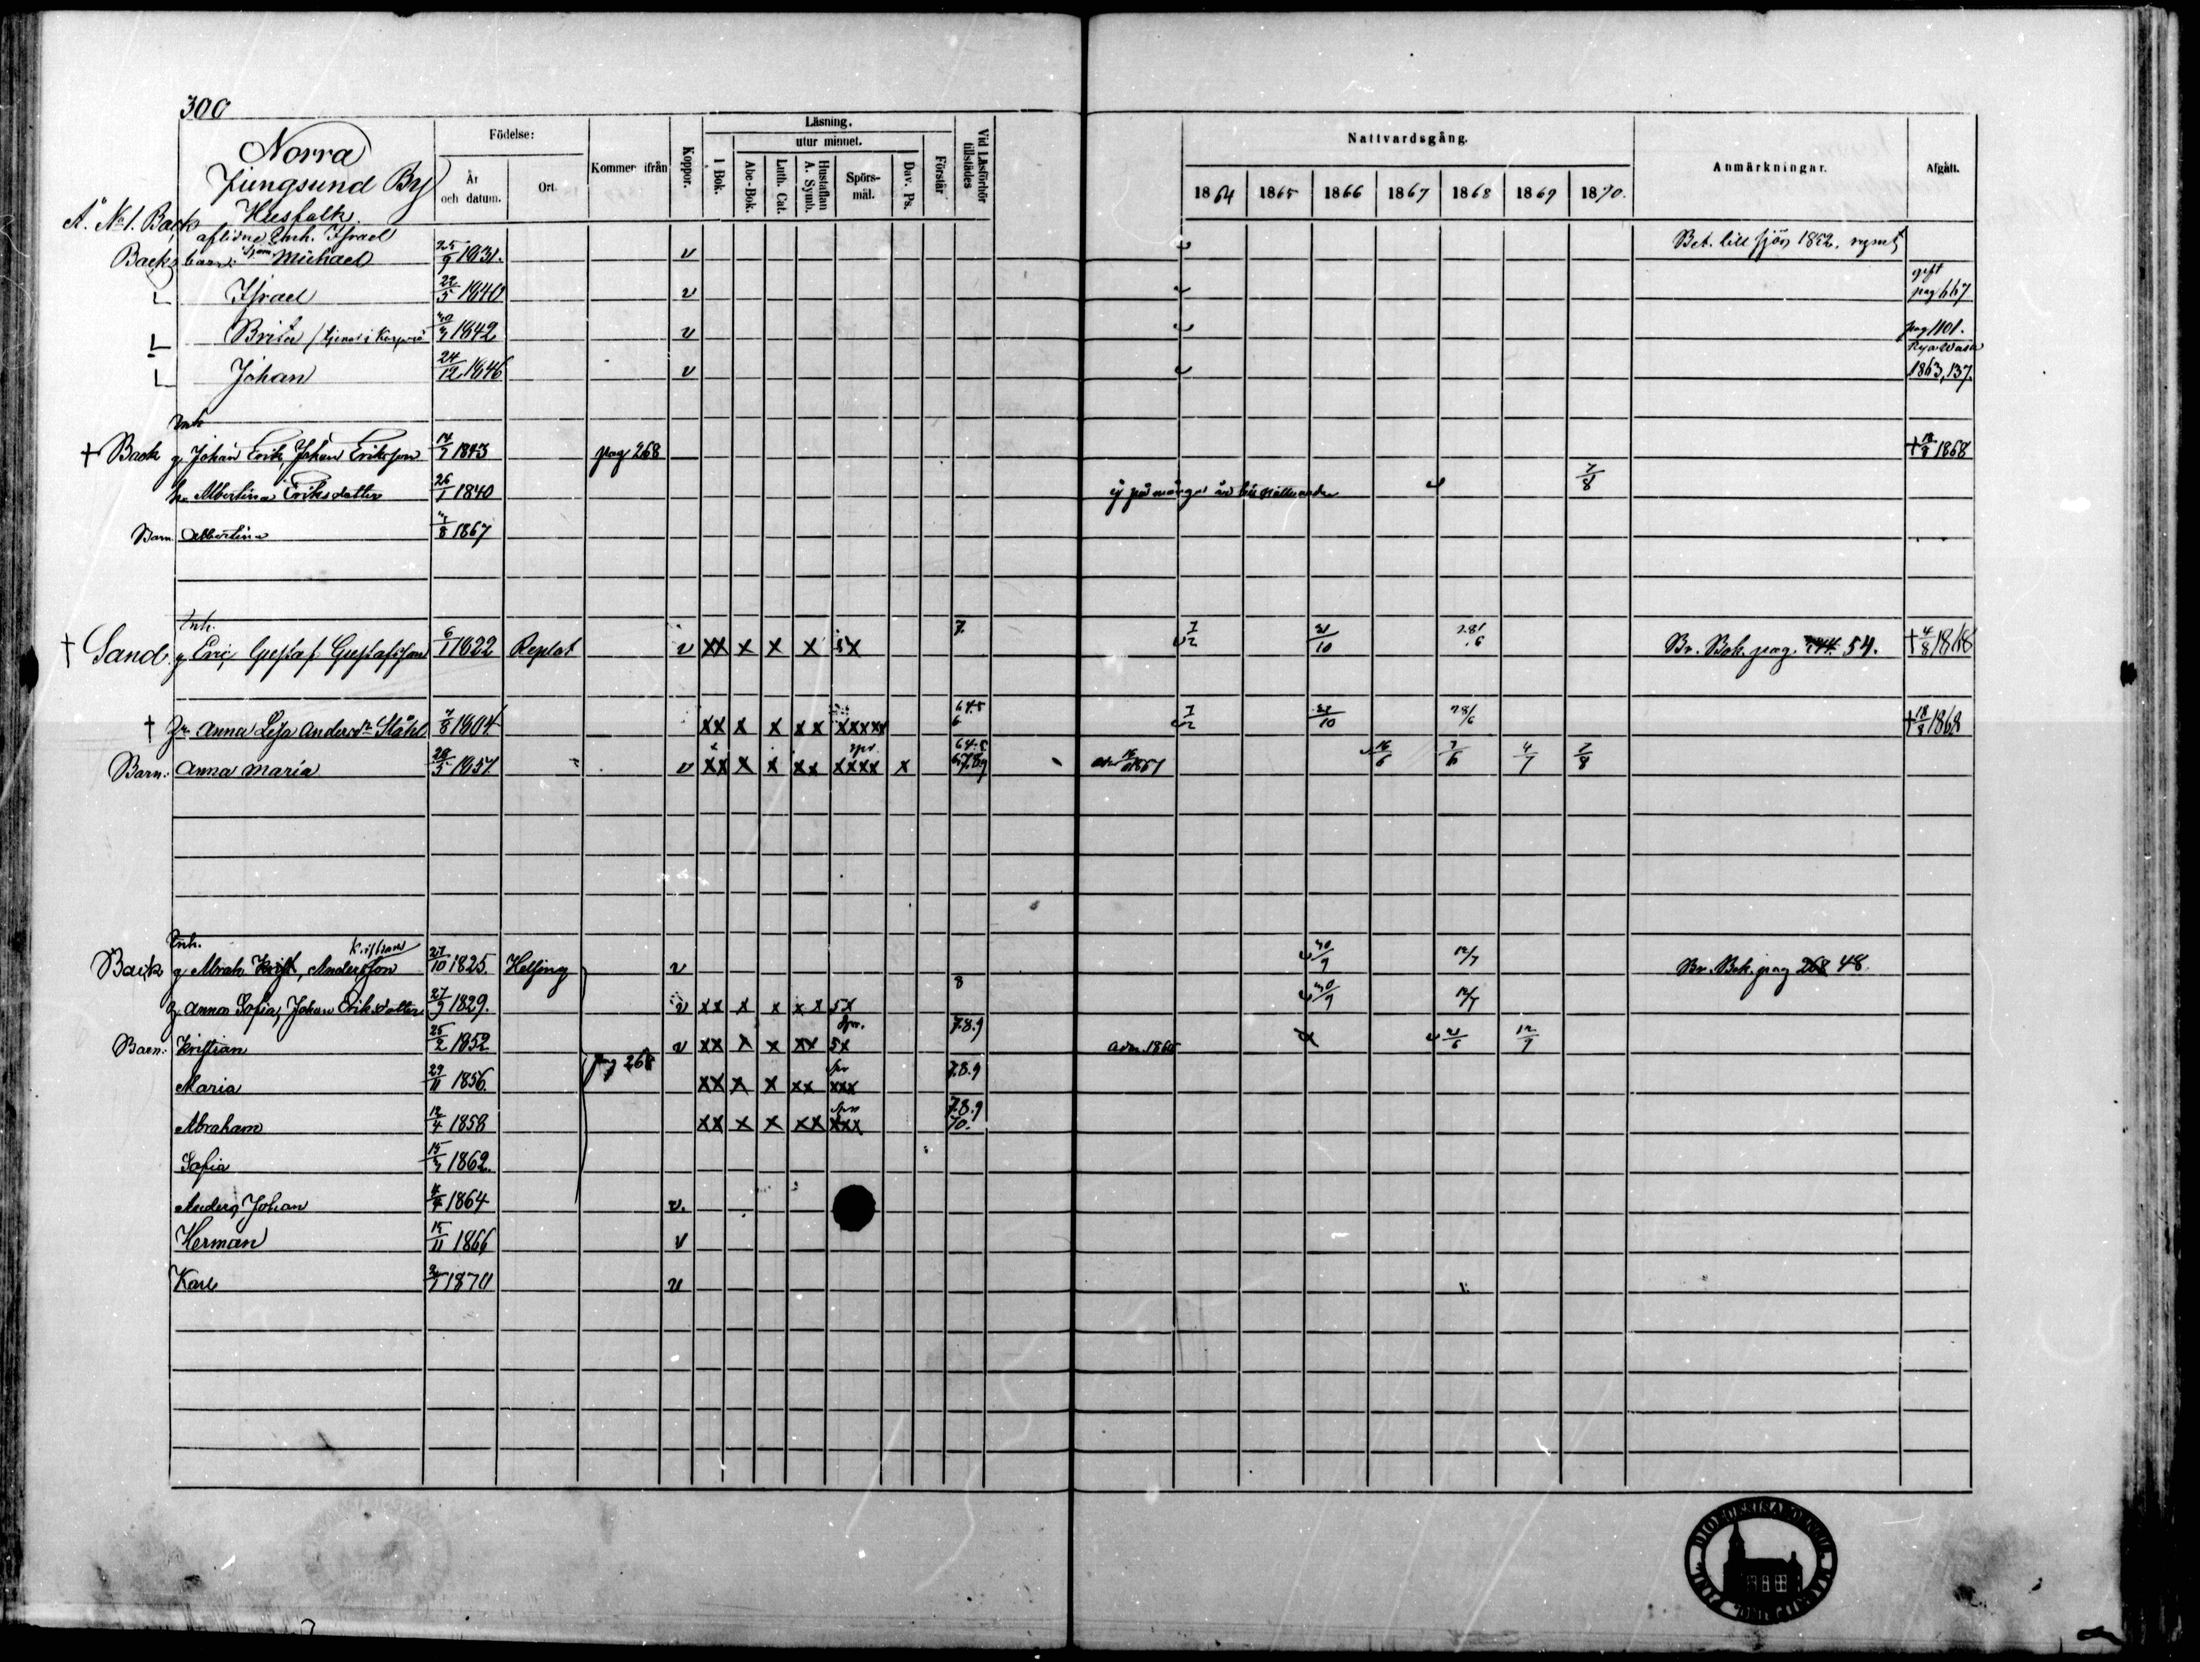 300
Norra
Jungsund By
Husfolk.
Födelse:
År och datum.
Ort.
Kommer ifrån
Koppor.
Läsning.
I Bok.
utur minnet.
Abc-Bok.
Luth. Cat.
Hustaflan A. Symb.
Spörs-mål.
Dav. Ps.
Förstår
Vid Läsförhör tillstädes
Nattvardsgång.
1864 1865 1866 1867 1868 1869 1870.
Anmärkningar.
Afgått.
N:o 1. Back
aflidne Inh. Israel
Backs barn: Michael 25/9 1831. v Bet. till sjös 1852.
Israel 22/5 1840 v gift pag 667
Brita 1842 v pag 1101.
Johan 24/12 1846 v 1863, 137.
Inh
† Back g Johan Erik Johan Eriksson 1843 pag 268 † 1868
h. Albertina Eriksdotter 26/1 1840 7/8
Barn Albertina 1867
Inh.
† Sand. g Eric Gustaf Gustafsson 6/1 1822 Replot v xx x x x 5x 7. 31/10 28/6 Br. Bok. pag. 54. † 4/8 1868
† Anna Lisa Andersdr Ståhl 7/8 1804 xx x x xx xxxxx 64.5 6 31/10 28/6 † 18/8 1868
Barn: Anna Maria 28/5 1851 v xx x x xx xxxx x 64.5 6.7.8.9 16/6 7/6 4/7 7/8
Inh.
Back g Abrah Krist, Andersson Kristian 27/10 1825. Helsing v 30/9 12/7 Br. Bok. pag 268 48.
h Anna Sofia, Johan Eriksdotter 27/9 1829. v xx x x xx 5x 8 30/9 12/7
Barn: Kristian 25/2 1852 v xx x x xx 5x 7.8.9 21/6 12/7
pag 268
Maria 29/11 1856. xx x x xx xxx 7.8.9
Abraham 12/4 1858 xx x x xx xxx 7.8.9 70.
Sofia 1862.
Anders Johan 1864 v.
Herman 15/11 1866 v
Karl 1870 v